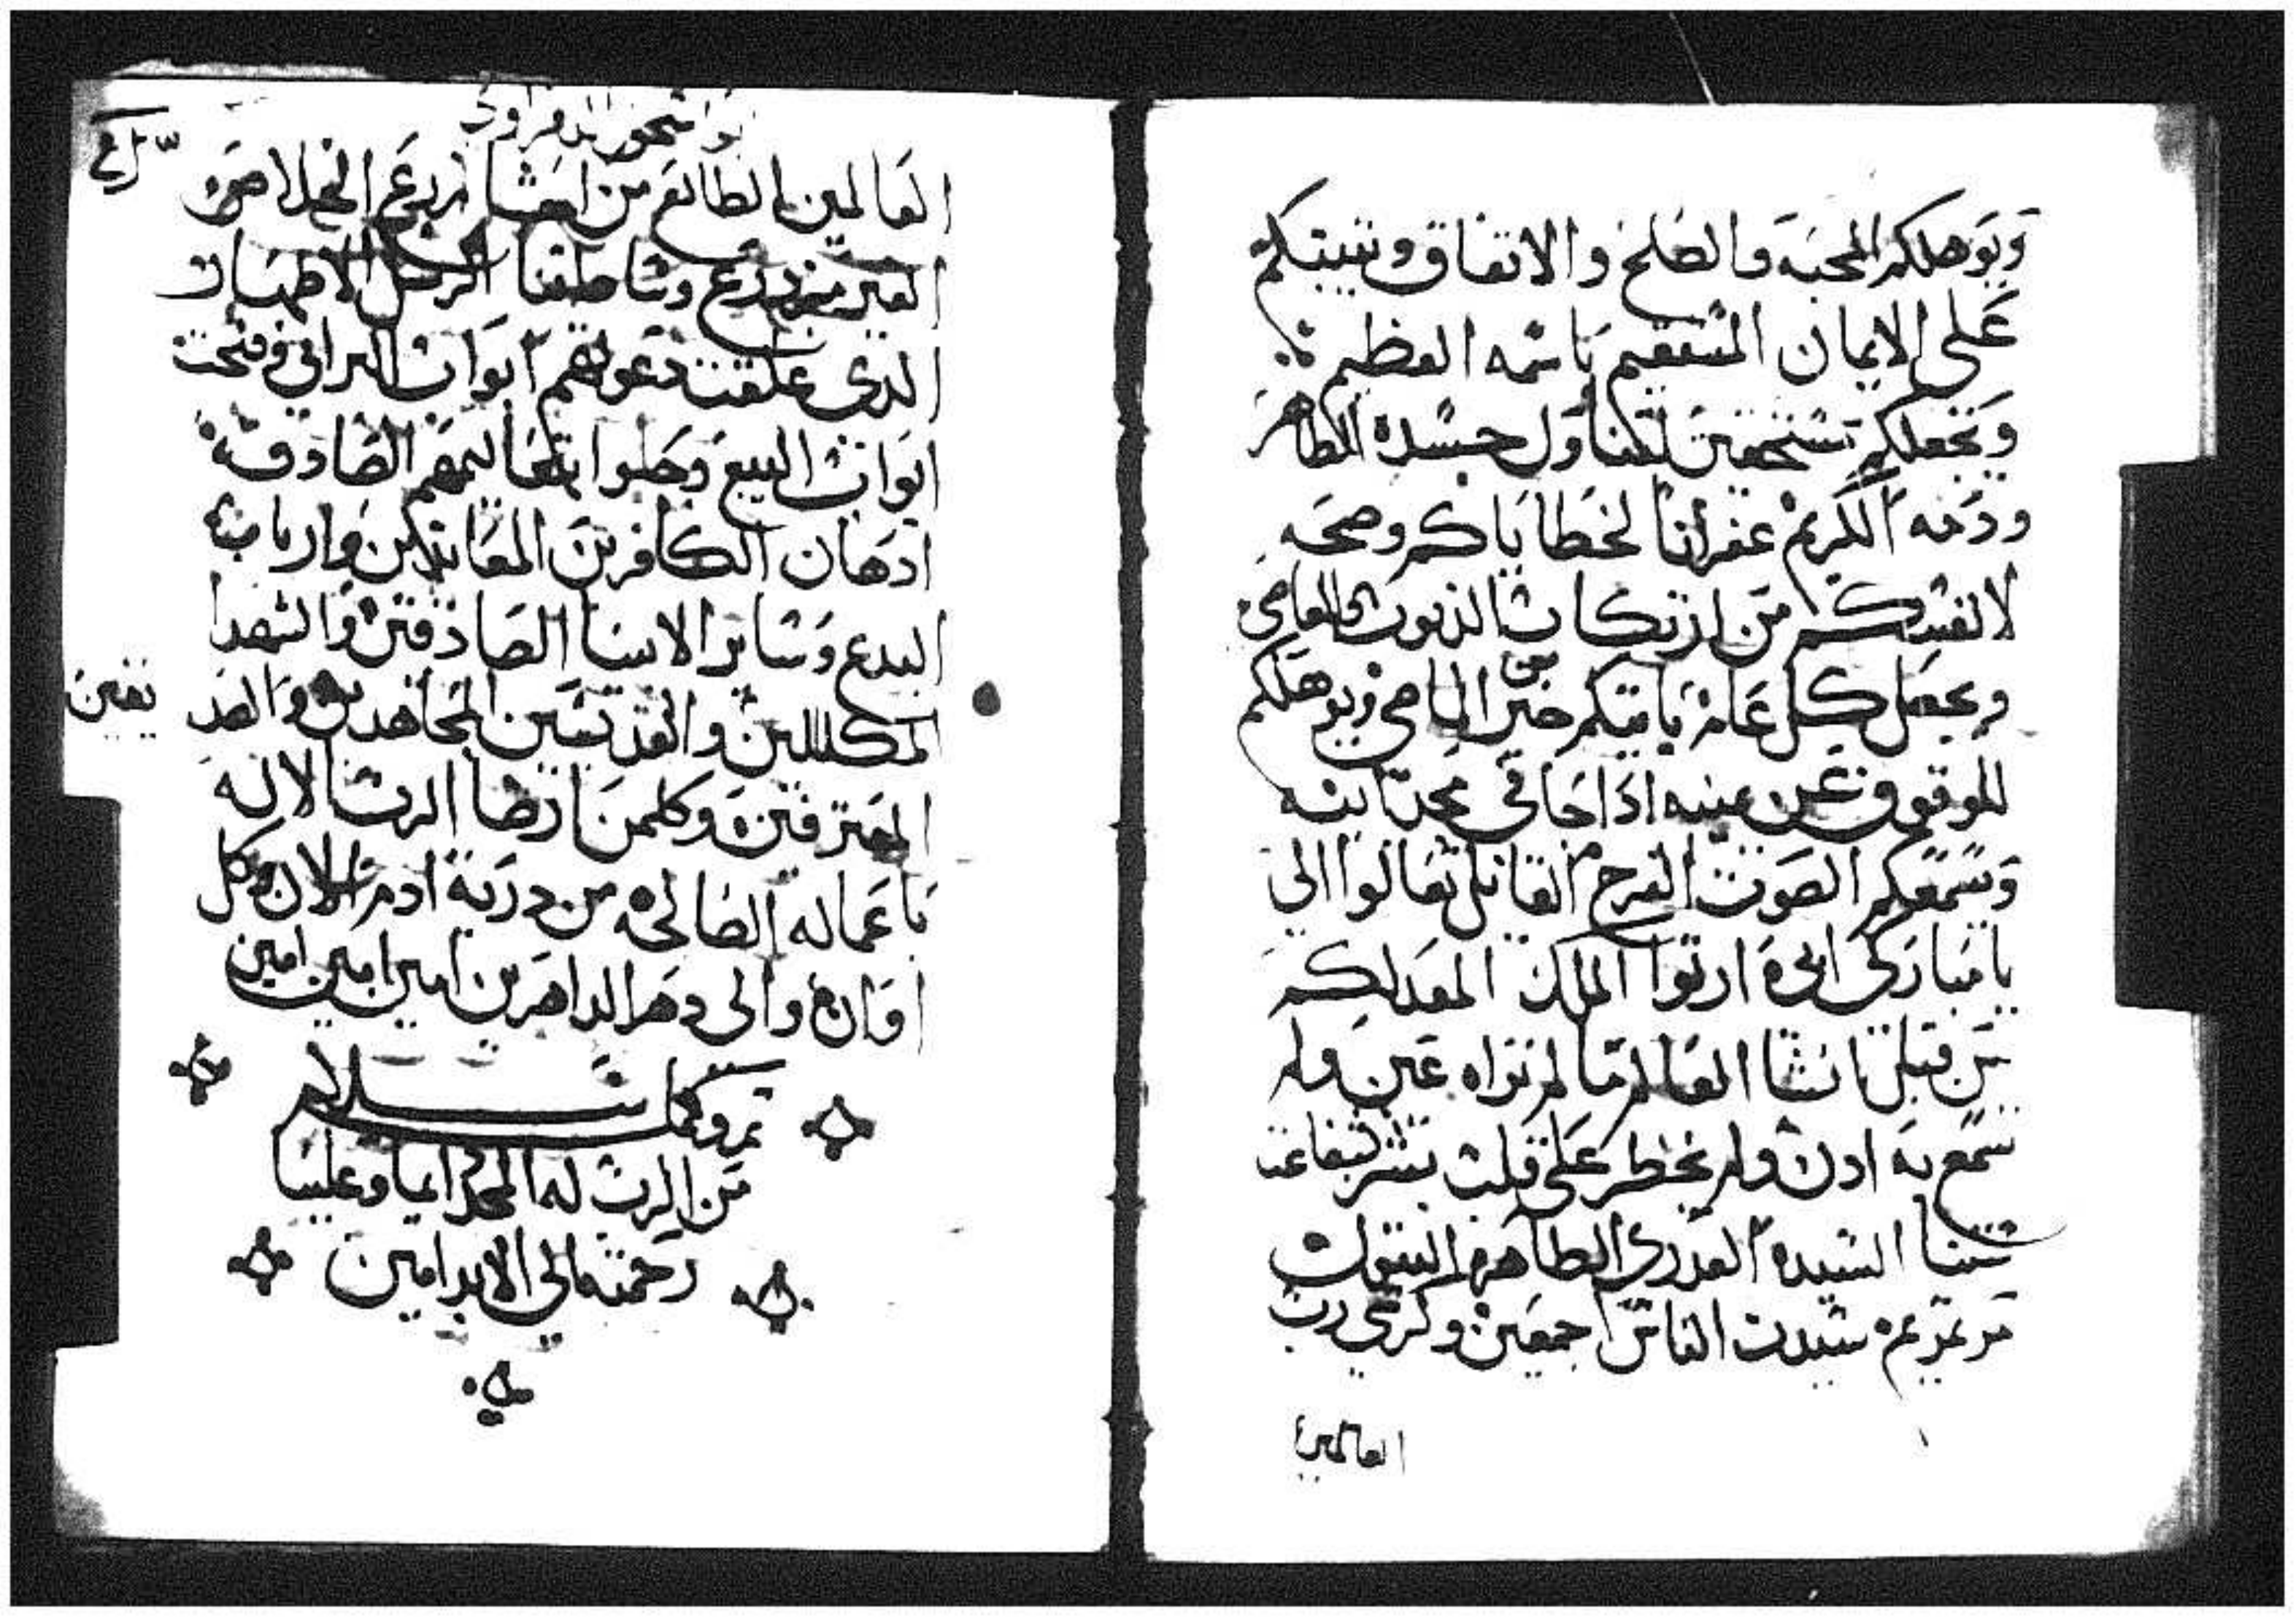 ويوهلكم المحبه والصلح والاتفاق ويثبتكم
على الايمان المستقيم باسمه العظيم
وتجعلكم مستحقين لتناول جسده الطاهر
ودمه الكريم غفرانا لخطاياكم وصحه
لانفسكم من ارتكاب الذنوب والمعاصي
ويجعل كل عام ياتيكم خير من الماضي ويوهلكم
للوقوف عن يمينه اذا جا في مجد ابيه
ويسمعكم الصوت الفرح القايل تعالوا الي
يا مباركي ابي ارثوا الملك المعد لكم
من قبل انشا العالم ما لم تراه عين ولم
تسمع به ادن ولم يخطر على قلب بشر بشفاعت
ستنا السيده العدري الطاهره البتول
مرتمريم سيدت الناس اجمعين وكرسي رب
العالمين
العالمين الطالع من احشا
الغير وساطقنا الرسل الاطهار
الدى غلقت دعوتهم ابواب البرابي وفتحت
ابواب البيع وحلوا بتعاليمهم الصادقه
ادهان الكافرين المعاندين وارباب
البدع وساير الانبيا الصادقين والشهدا
المكللين والقديسين المجاهدين والصد
يقين
المعترفين وكلمن ارضا الرب الاله
باعماله الصالحه من درية ادم الان وكل
اوان والى دهر الداهرين امين امين امين
تم وكمل بسلام
من الرب له المجد ايما وعلينا
رحمته الي الابد امين